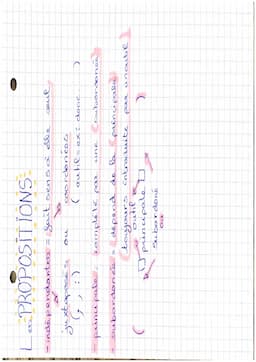 Les PROPOSITIONS:
- indépendantes = fait sens à elle seul
juxtaposées ou coordonées
(, ; :) (outil = ex: donc...)
- principale complété par une (subordonnée)
- subordonnée = dépend de la (principale)
(toujours introduite par un outil)
outil
( [ ] principale [ ] )
subordonné
ou